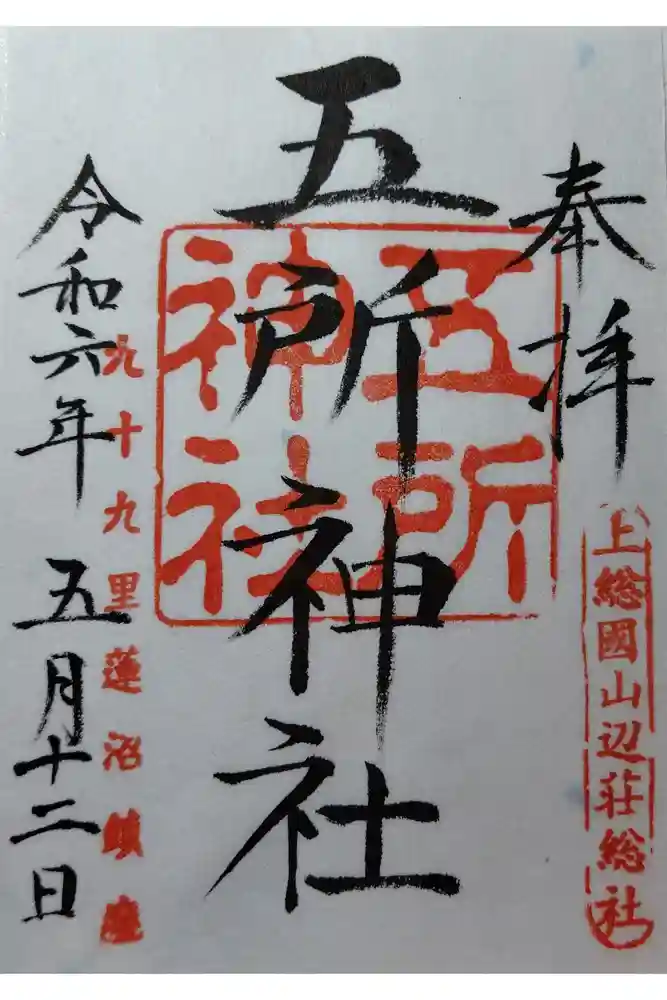 奉拝
上総國山辺荘総社
五所神社
五所
神社
九十九里蓮沼鎮座
令和六年 五月十二日